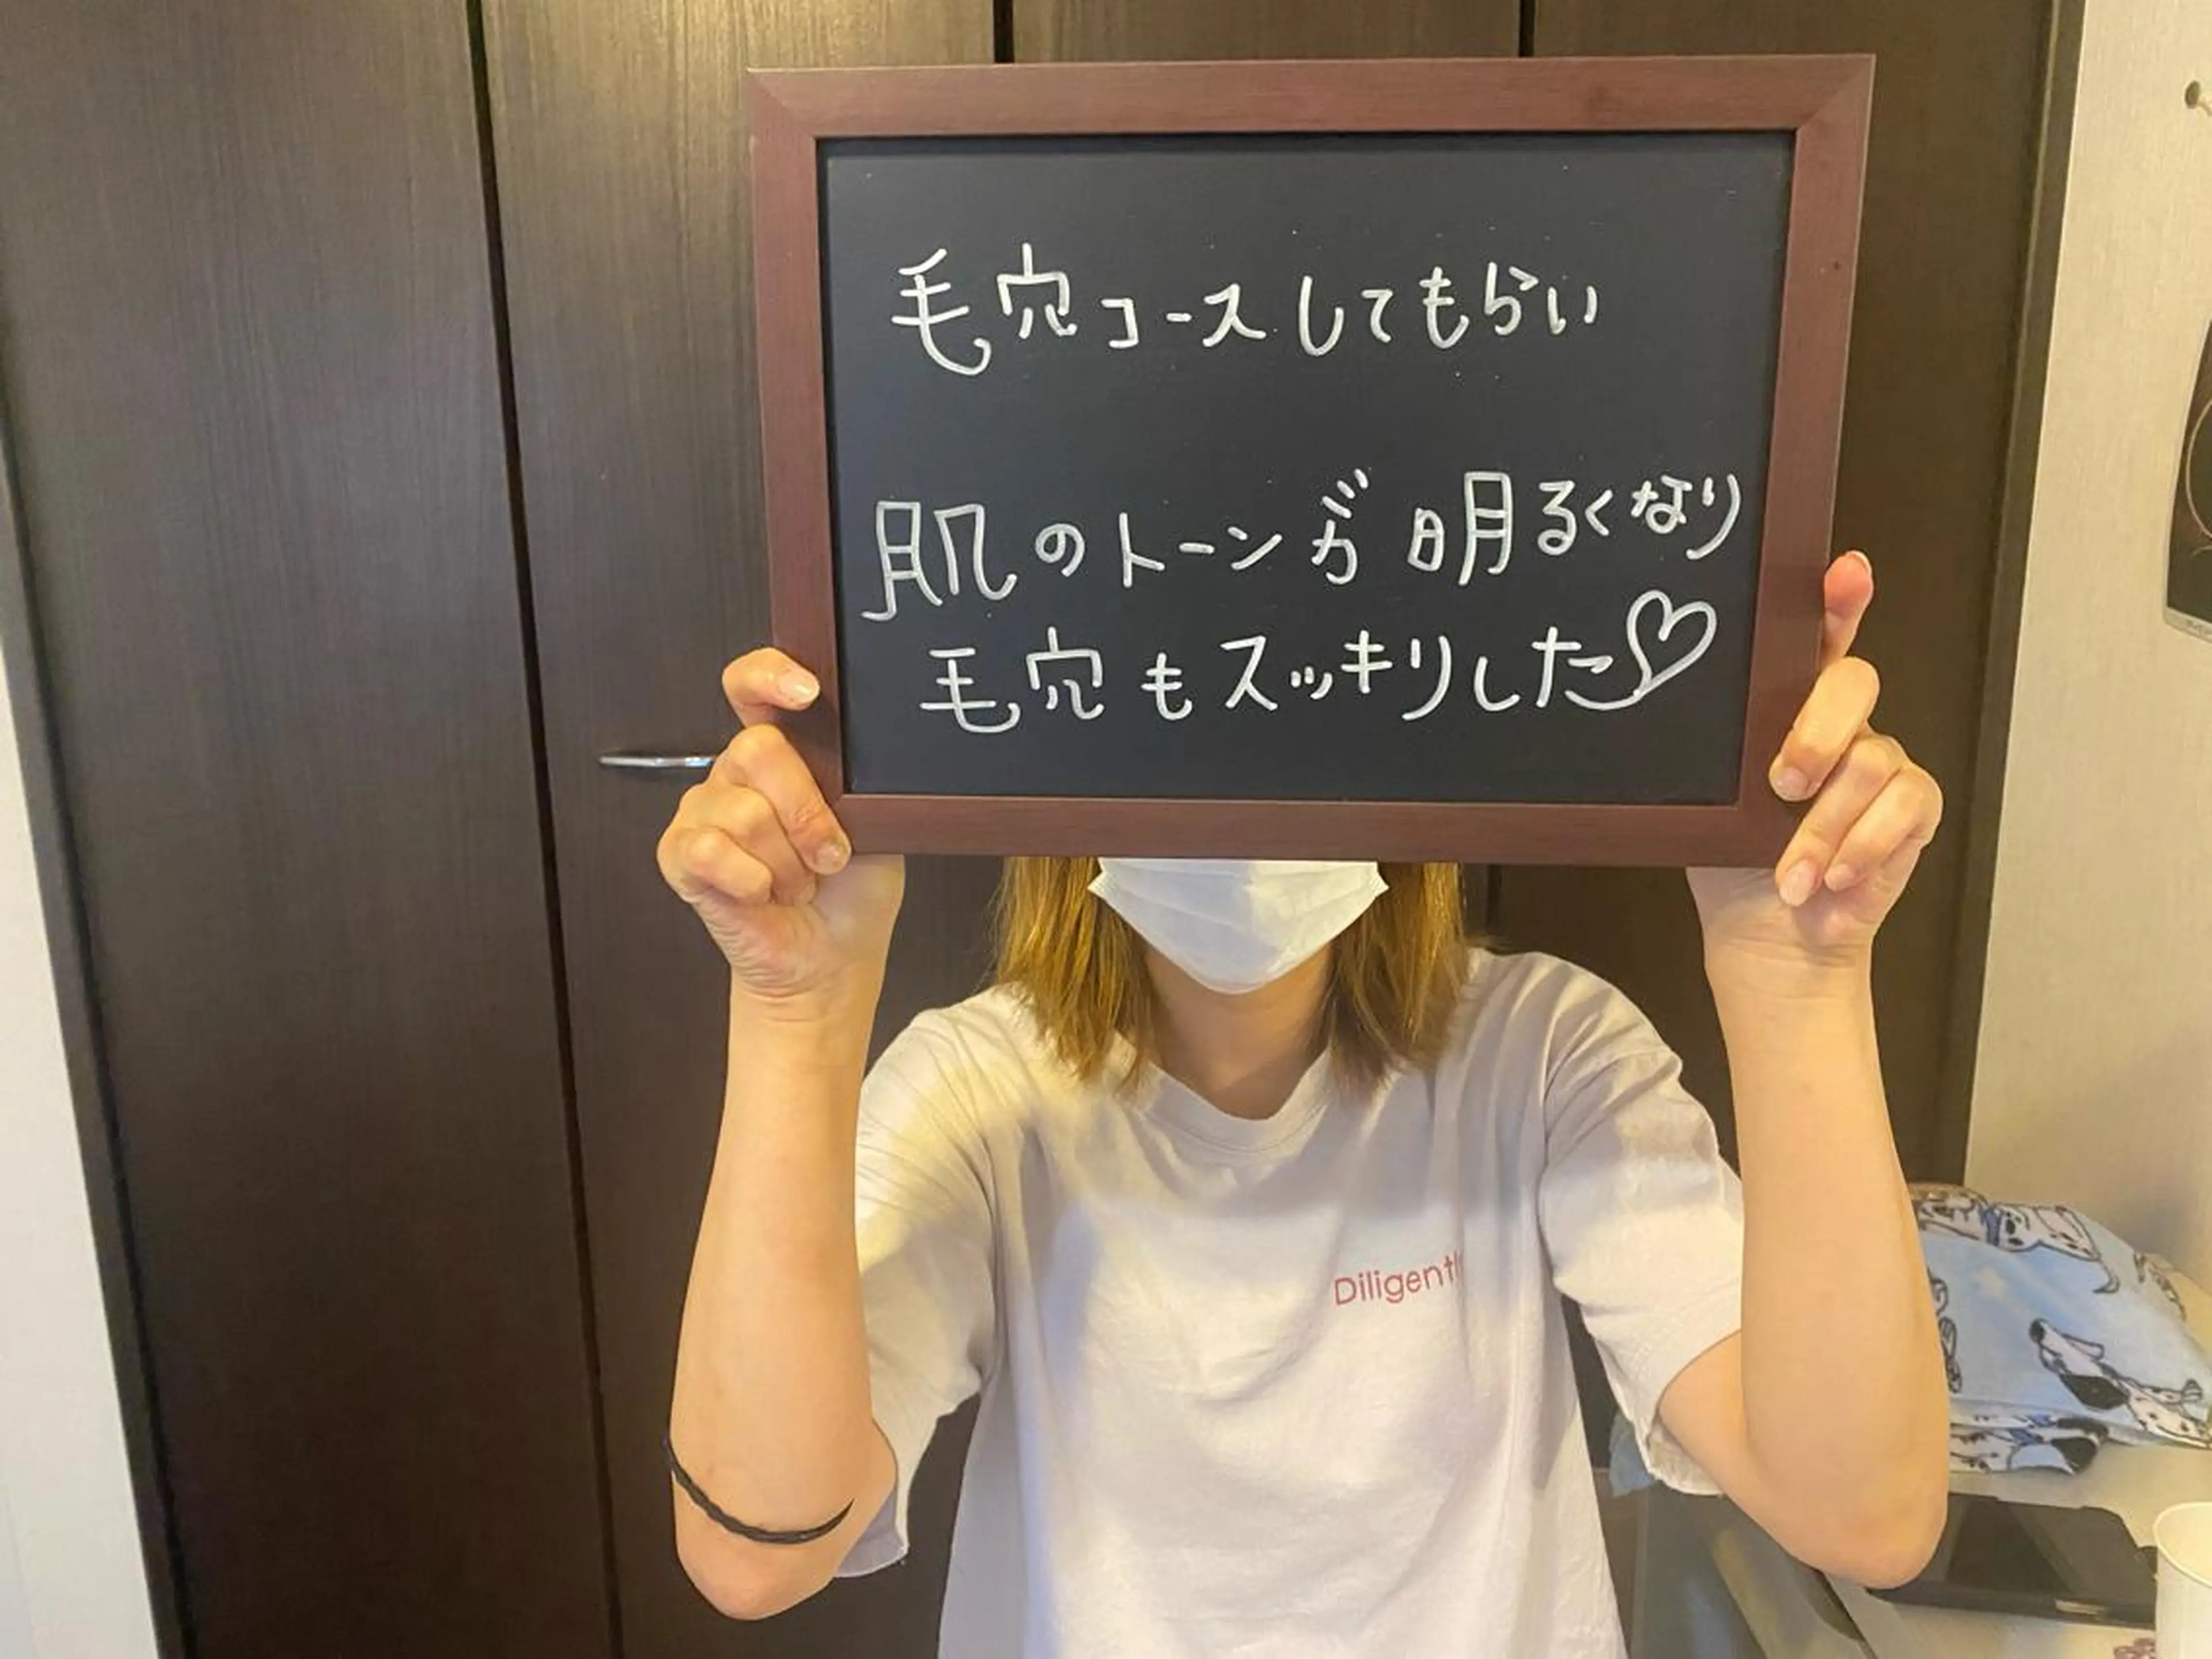 毛穴コースしてもらい
肌のトーンが明るくなり
毛穴もスッキリした♡
Diligently